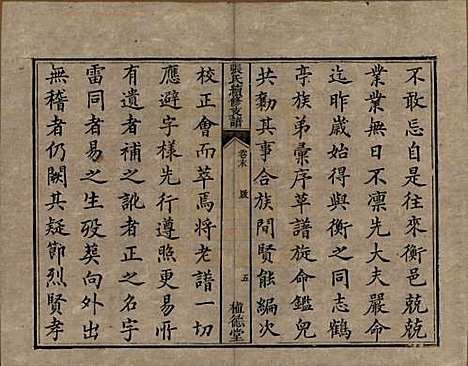 不敢忘自是往來衡邑兢兢
業業無日不凛先大夫嚴命
迄昨歲始得與衡之同志鶴
亭族弟彙序草譜旋命鑑兒
共勷其事合族間賢能編次
張氏續修支譜
卷末
跋
五
植德堂
校正會而萃焉將老譜一切
應避字樣先行遵照更易所
有遺者補之訛者正之名字
雷同者易之生殁葬向外出
無稽者仍闕其疑節烈賢孝